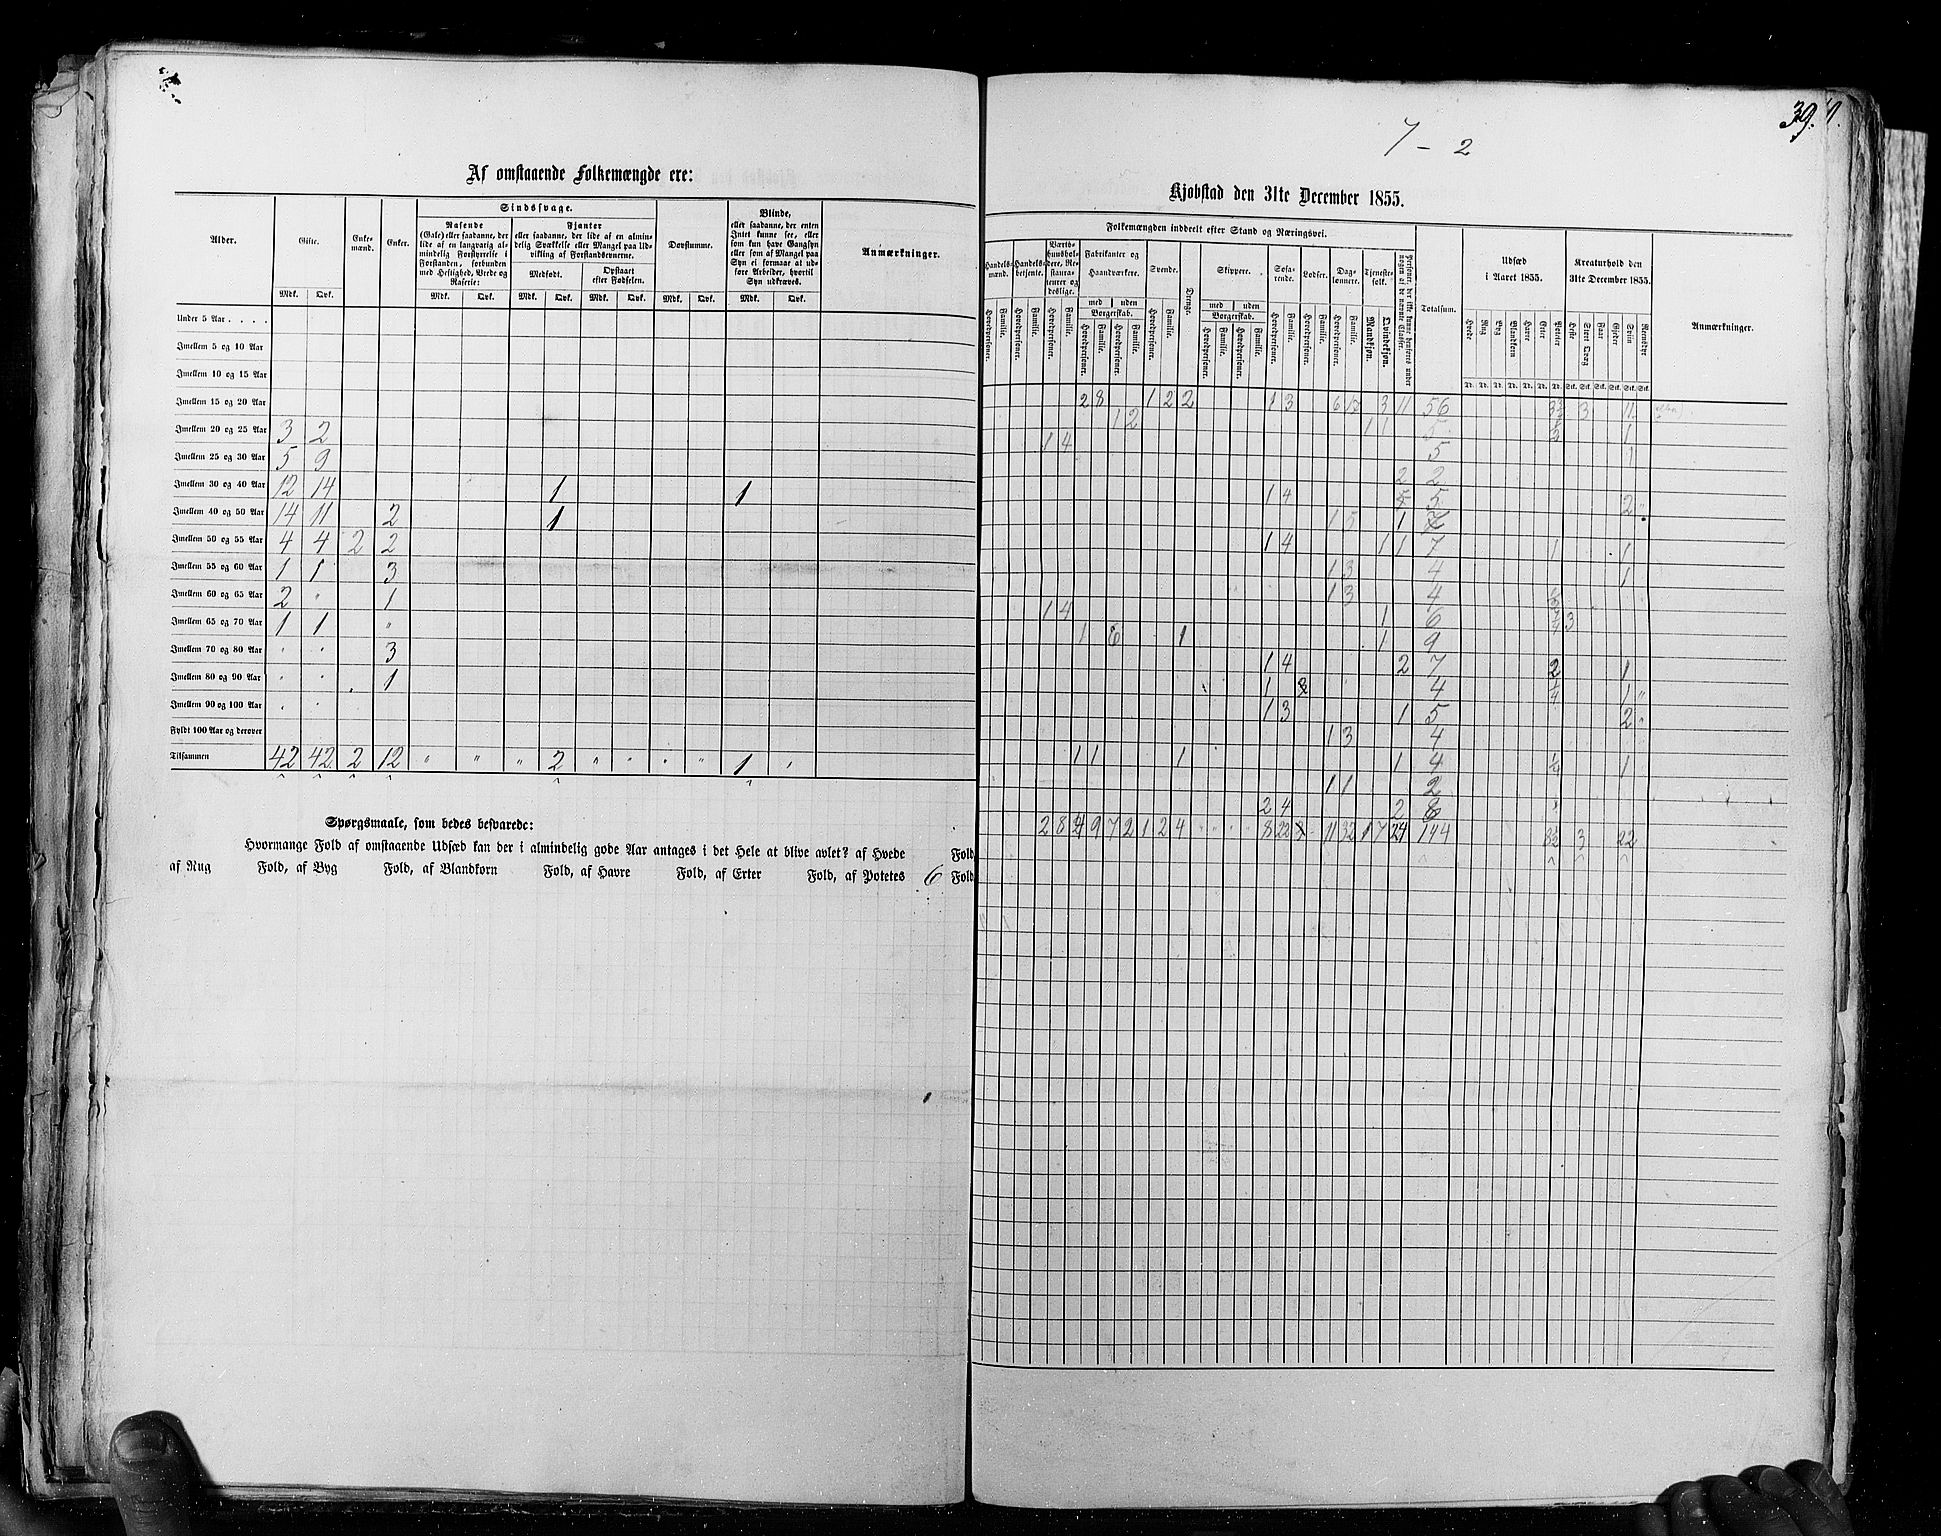 Af omstaaende Folkemængde ere:
Alder. Gifte. Enkemænd. Enker. Sindssvage. Døvstumme. Blinde, Anmærkninger.
Rasende
(Gale) eller saadanne, der
lide af en langvarig almindelig Forstyrrelse i
Forstanden, forbunden
med Heftighed, Vrede og
Raserie:
Fjanter
eller saadanne, der lide af en almindelig Svækkelse eller Mangel paa Udvikling af Forstandsevnerne.
Medfødt. Opstaaet efter Fødselen.
eller saadanne, der enten
Intet kunne see, eller
som kun have Gangsyn
eller som af Mangel paa
Syn ei formaae at udføre Arbeider, hvortil
Syn udkræves.
Mdk. Qvk. Mdk. Qvk. Mdk. Qvk. Mdk. Qvk. Mdk. Qvk. Mdk. Qvk.
Under 5 Aar . . . .
Imellem 5 og 10 Aar
Imellem 10 og 15 Aar
Imellem 15 og 20 Aar
Imellem 20 og 25 Aar 3 2
Imellem 25 og 30 Aar 5 9
Imellem 30 og 40 Aar 12 14 1 1
Imellem 40 og 50 Aar 14 11 2 1
Imellem 50 og 55 Aar 4 4 2 2
Imellem 55 og 60 Aar 1 1 3
Imellem 60 og 65 Aar 2 " 1
Imellem 65 og 70 Aar 1 1 "
Imellem 70 og 80 Aar " " 3
Imellem 80 og 90 Aar " " 1
Imellem 90 og 100 Aar " "
Fyldt 100 Aar og derover
Tilsammen 42 42 2 12 " " " 2 " " " " 1 "
Spørgsmaale, som bedes besvarede:
Hvormange Fold af omstaaende Udsæd kan der i almindelig gode Aar antages i det Hele at blive avlet? af Hvede Fold,
af Rug Fold, af Byg Fold, af Blandkorn Fold, af Havre Fold, af Erter Fold, af Potetes 6 Fold
39.
7 - 2
Kjøbstad den 31te December 1855.
Folkemængden inddeelt efter Stand og Næringsvei. Totalsum. Udsæd i Aaret 1855. Kreaturhold den 31te December 1855. Anmærkninger.
Handelsmænd. Handelsbetjente. Værtshuusholdere, Restaurateurer og deslige. Fabrikanter og Haandværkere. Svende. Drenge. Skippere. Søfarende. Lodser. Dagslønnere. Tjenestefolk. Personer, der ikke kunne henføres under nogen af de nævnte Classer.
med uden Borgerskab. med uden Borgerskab.
Hovedpersoner. Familie. Mandkjøn. Qvindekjøn.
Hvede Rug Byg Blandkorn Havre Erter Poteter Heste Stort Qvæg Faar Gjeder Sviin Rensdyr
2 8 1 2 2 1 3 3 11 56 3 11
1 2 1 1 5 1
1 4 5 1
2 2
1 4 5 2
1 5 1
1 4 1 1 7 1 1
1 3 4 1
1 3 4
1 4 1 6 3
1 6 1 1 9
1 4 2 7 2 1
1 4 1/4 1 "
1 3 1 5 2 "
1 3 4
1 1 1 1 4 1/4 1
1 1 2
2 4 2 8
2 8 9 7 2 1 2 4 " " " " 8 22 11 32 1 7 24 144 3 22